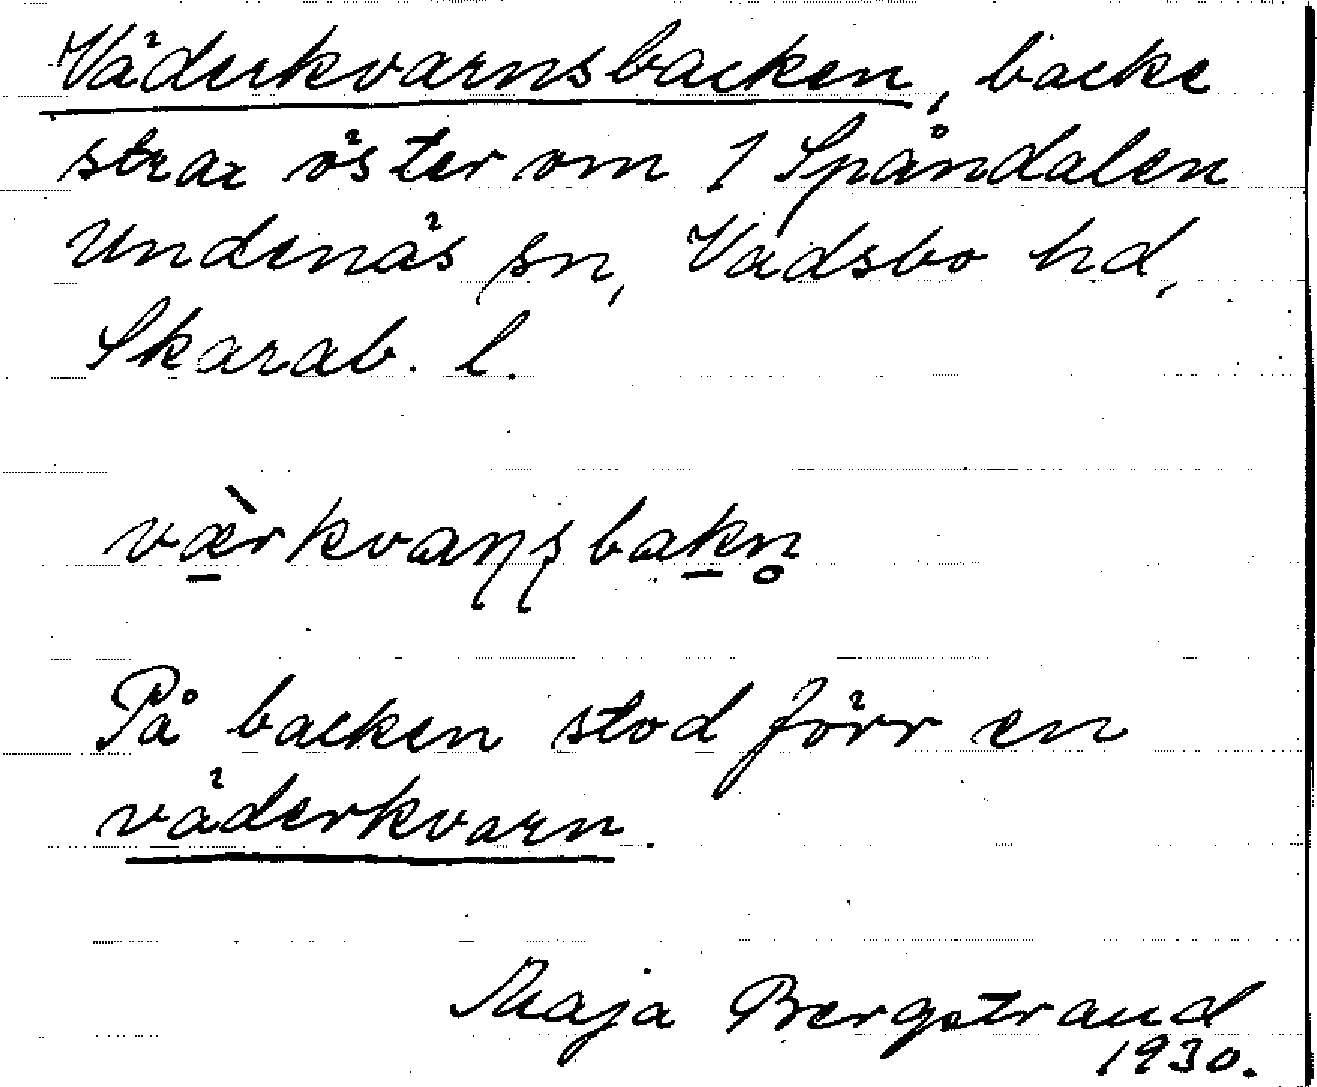 Väderkvarnsbacken, backe
strax öster om 1 Spåndalen
Undenäs sn, Vadsbo hd,
Skarab. l.
væ̀rkvaɳʂbakn̥
På backen stod förr en
väderkvarn.
Maja Bergstrand
1930.